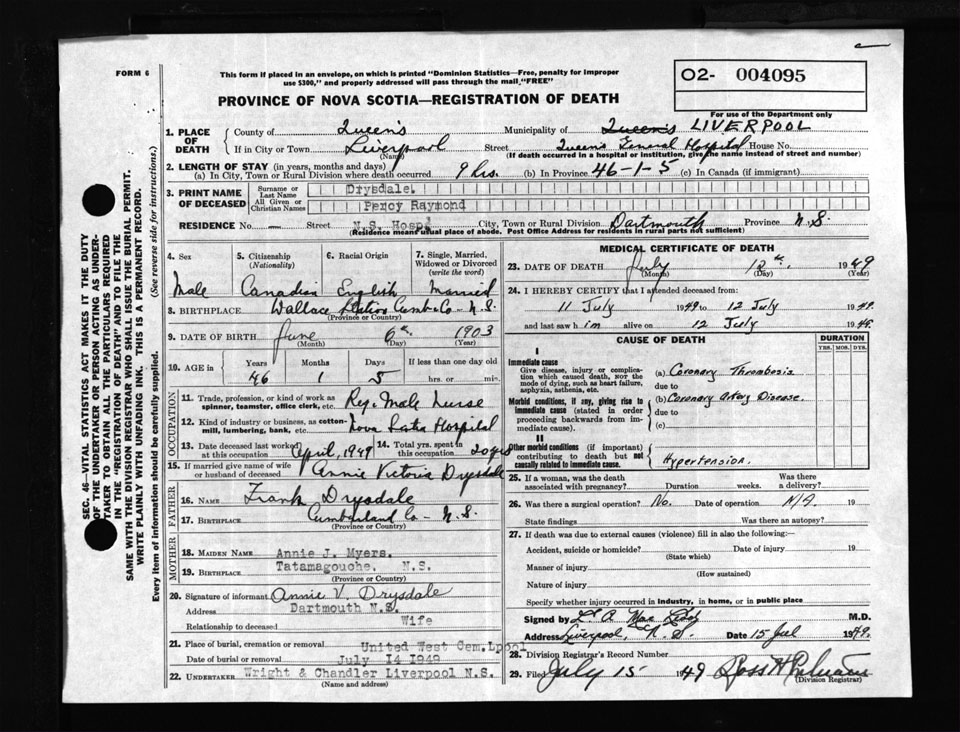 FORM 6
This form if placed in an envelope, on which is printed "Dominion Statistics—Free, penalty for improper
use $300," and properly addressed will pass through the mail "FREE"
O2- 004095
For use of the Department only
PROVINCE OF NOVA SCOTIA—REGISTRATION OF DEATH
SEC. 46—VITAL STATISTICS ACT MAKES IT THE DUTY
OF THE UNDERTAKER OR PERSON ACTING AS UNDER-
TAKER TO OBTAIN ALL THE PARTICULARS REQUIRED
IN THE "REGISTRATION OF DEATH" AND TO FILE THE
SAME WITH THE DIVISION REGISTRAR WHO SHALL ISSUE THE BURIAL PERMIT.
WRITE PLAINLY WITH UNFADING INK. THIS IS A PERMANENT RECORD.
Every item of Information should be carefully supplied. (See reverse side for instructions.)
1. PLACE OF DEATH
County of Queen's Municipality of Queen's LIVERPOOL
If in City or Town Liverpool Street Queen's General Hospital House No.
(Name) (If death occurred in a hospital or institution, give the name instead of street and number)
2. LENGTH OF STAY (in years, months and days)
(a) In City, Town or Rural Division where death occurred 9 hrs. (b) In Province 46-1-5 (c) In Canada (if immigrant)
3. PRINT NAME OF DECEASED
Surname or Last Name Drysdale.
All Given or Christian Names Percy Raymond
RESIDENCE No. — Street N.S. Hosp. City, Town or Rural Division Dartmouth Province N.S.
(Residence means usual place of abode. Post Office Address for residents in rural parts not sufficient)
4. Sex 5. Citizenship (Nationality) 6. Racial Origin 7. Single, Married, Widowed or Divorced (write the word)
Male Canadian English Married
8. BIRTHPLACE Wallace Station Cumb. Co- N.S.
(Province or Country)
9. DATE OF BIRTH June 6th 1903
(Month) (Day) (Year)
10. AGE in Years Months Days If less than one day old
46 1 5 hrs. or min.
OCCUPATION
11. Trade, profession, or kind of work as
spinner, teamster, office clerk, etc. Reg. Male Nurse
12. Kind of industry or business, as cotton-
mill, lumbering, bank, etc. Nova Scotia Hospital
13. Date deceased last worked at this occupation April, 1949 14. Total yrs. spent in this occupation 20 yrs
15. If married give name of wife or husband of deceased Annie Victoria Drysdale
FATHER
16. NAME Frank Drysdale
17. BIRTHPLACE Cumberland Co- N.S.
(Province or Country)
MOTHER
18. MAIDEN NAME Annie J. Myers.
19. BIRTHPLACE Tatamagouche. N.S.
(Province or Country)
20. Signature of informant Annie V. Drysdale
Address Dartmouth N.S.
Relationship to deceased Wife
21. Place of burial, cremation or removal United West Cem. Lpool
Date of burial or removal July 14 1949
22. UNDERTAKER Wright & Chandler Liverpool N.S.
(Name and address)
MEDICAL CERTIFICATE OF DEATH
23. DATE OF DEATH July 12th. 1949
(Month) (Day) (Year)
24. I HEREBY CERTIFY that I attended deceased from:
11 July 1949 to 12 July 1949.
and last saw him alive on 12 July 1949.
CAUSE OF DEATH DURATION
YRS. MOS. DYS.
I
Immediate cause
Give disease, injury or complica-
tion which caused death, not the
mode of dying, such as heart failure,
asphyxia, asthenia, etc.
(a) Coronary Thrombosis
due to
Morbid conditions, if any, giving rise to
immediate cause (stated in order
proceeding backwards from im-
mediate cause).
(b) Coronary Artery Disease.
due to
(c)
II
Other morbid conditions (if important)
contributing to death but not
causally related to immediate cause.
Hypertension.
25. If a woman, was the death associated with pregnancy? Duration weeks. Was there a delivery?
26. Was there a surgical operation? No. Date of operation N/A. 19
State findings Was there an autopsy?
27. If death was due to external causes (violence) fill in also the following:—
Accident, suicide or homicide? Date of injury 19
(State which)
Manner of injury
(How sustained)
Nature of injury
Specify whether injury occurred in industry, in home, or in public place
Signed by M.D.
Address Liverpool, N.S. Date 15 Jul 1949.
28. Division Registrar's Record Number
29. Filed July 15 1949 Ross H
(Division Registrar)